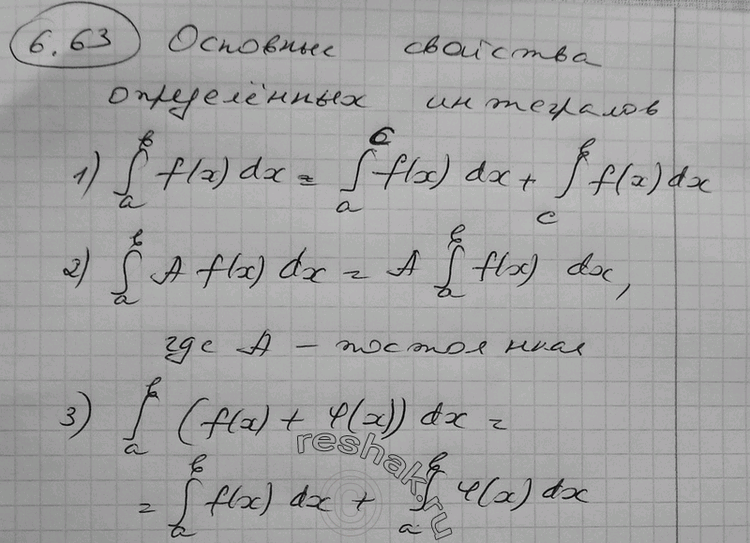 6.63 Основные свойства
определённых интегралов
1) ∫ₐᵇ f(x) dx = ∫ₐᶜ f(x) dx + ∫_c^b f(x) dx
2) ∫ₐᵇ A f(x) dx = A ∫ₐᵇ f(x) dx,
где A – постоянная
3) ∫ₐᵇ (f(x) + φ(x)) dx =
= ∫ₐᵇ f(x) dx + ∫ₐᵇ φ(x) dx
reshak.ru